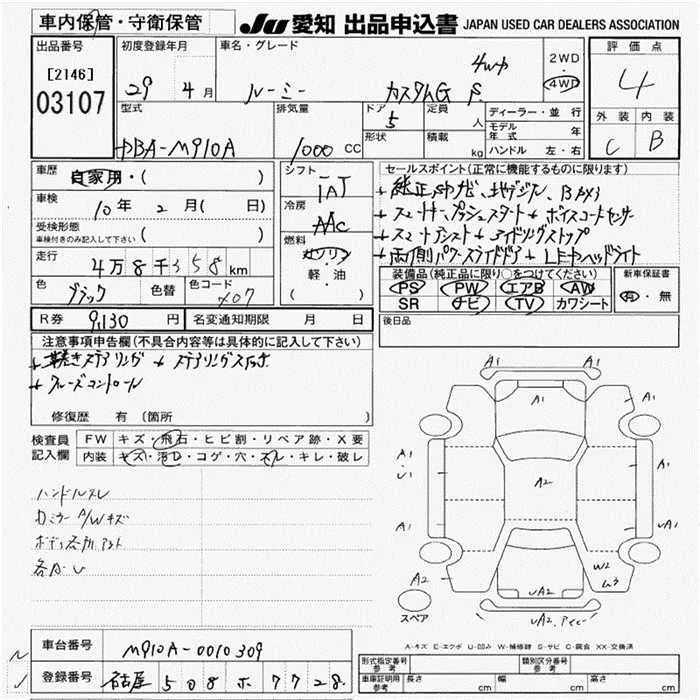 車内保管・守衛保管
JU 愛知 出品申込書 JAPAN USED CAR DEALERS ASSOCIATION
出品番号
[2146]
03107
初度登録年月
29 4月
車名・グレード
ルーミー カスタムG S. 4WD
2WD
4WD
評価点
4
外装 内装
C B
型式
DBA-M910A
排気量
1000 CC
ドア
5
形状
定員
人
積載
kg
ディーラー・並行
モデル年式 年
ハンドル 左・右
車歴
自家用・( )
車検
10年 2月( 日)
受検形態
車検付きのみ記入して下さい ( )
走行
4万8千358km
色
ブラック
色替
色コード
X07
シフト
IAT
冷房
AAC
燃料
ガソリン
軽・油
( )
セールスポイント(正常に機能するものに限ります)
+ 純正SDナビ、地デジTV、Bカメラ
+ スマートキー、プッシュスタート + ボイスコーナーセンサー
+ スマートアシスト + アイドリングストップ
+ 両側パワースライドドア + LEDヘッドライト
装備品(純正品に限り○をつけてください)
PS PW エアB AW
SR ナビ TV カワシート
新車保証書
有・無
後日品
R券 9,130 円 名変通知期限 月 日
注意事項申告欄(不具合内容等は具体的に記入して下さい)
+ 革巻きステアリング + ステアリングスイッチ
+ クルーズコントロール
修復歴 有 (箇所 )
検査員
記入欄
FW キズ・飛石・ヒビ割・リペア跡・X要
内装 キズ・汚レ・コゲ・穴・スレ・キレ・破レ
ハンドルスレ
Dミラー A/Wキズ
ボディ各所
各A・U
A1
A1
A1
A1
A1
・
U1
A2
A1
A1
UA1
W2
U3
A2
UA2
UA2.
スペア
A-キズ E-エクボ U-凹み W-補修跡 S-サビ C-腐食 XX-交換済
車台番号
M910A-0010309
登録番号
名古屋 508 ホ 7728
形式指定番号
参考
類別区分番号
参考
車庫証明用
参考
長さ cm 幅 cm 高さ cm